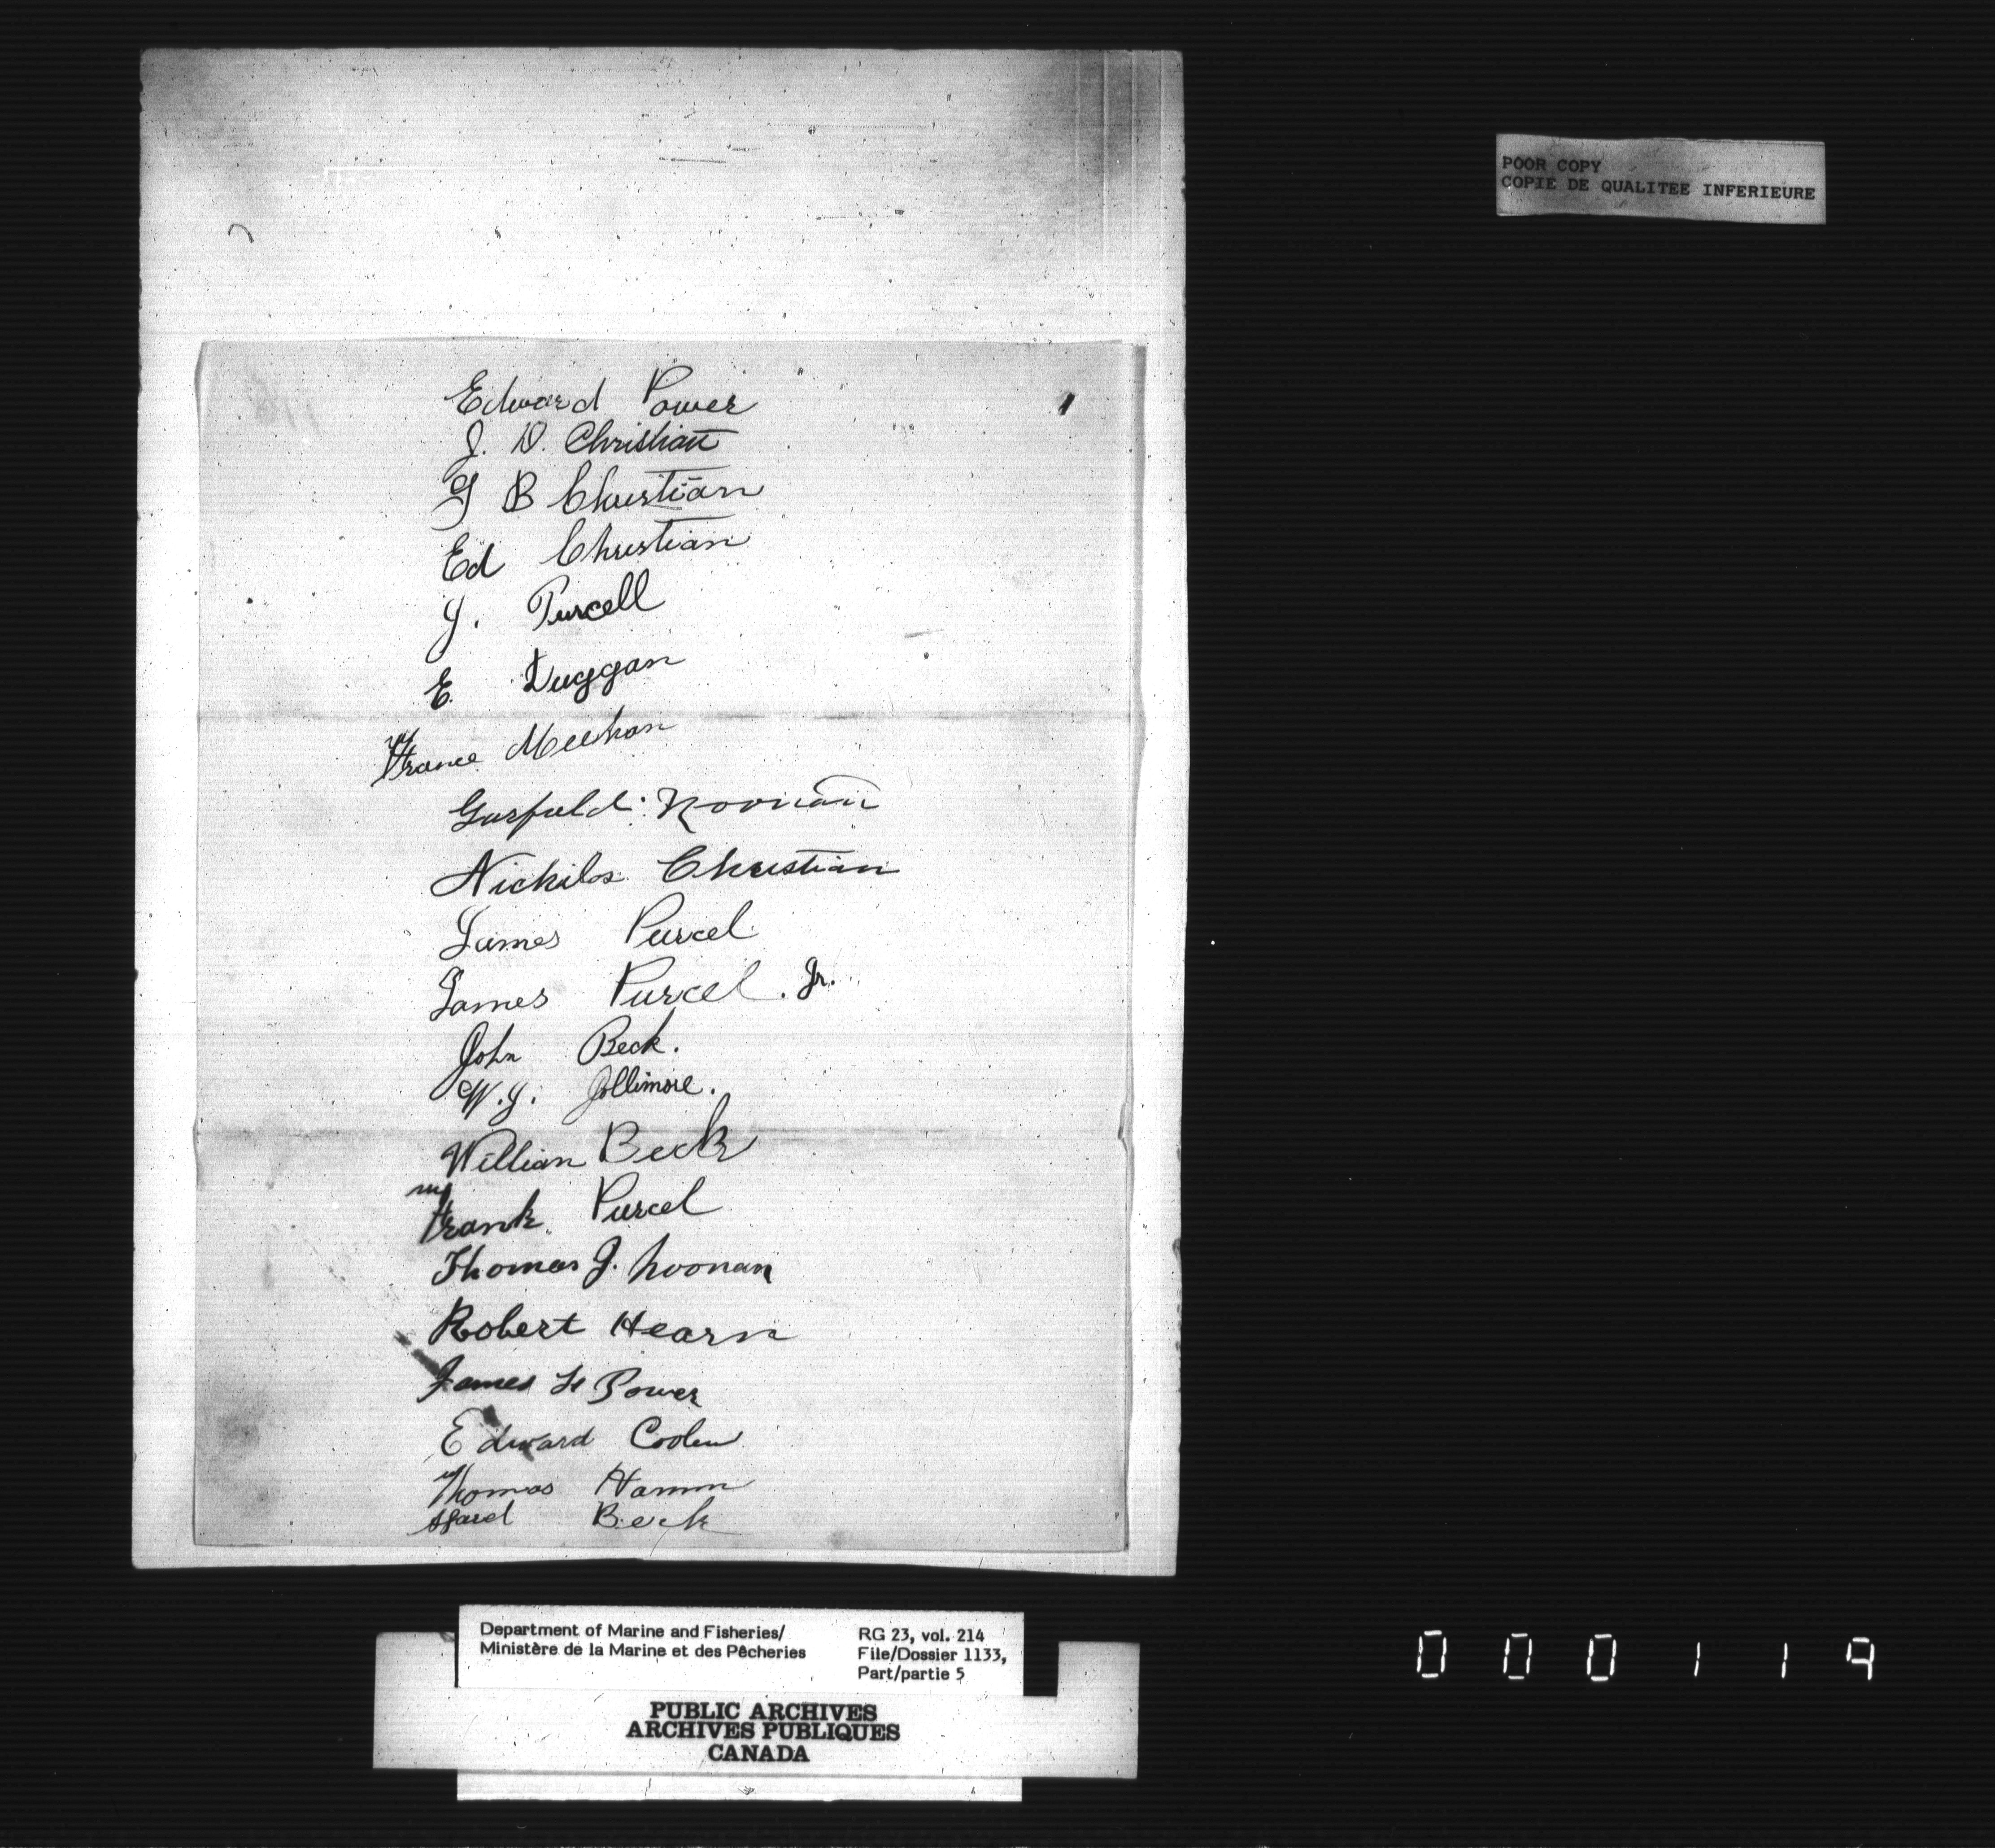 POOR COPY
COPIE DE QUALITEE INFERIEURE
Edward Power
J. D. Christian
J B Christian
Ed Christian
J. Purcell
E. Duggan
France Meehan
Garfield Noonan
Nickilos Christian
James Purcel.
James Purcel. Jr.
John Beck.
W. J. Jollimore.
Willian Beck
Frank Purcel
Thomas J. Noonan
Robert Hearn
James H Power
Edward Coolen
Thomas Hamm
Beck
Department of Marine and Fisheries/
Ministère de la Marine et des Pêcheries
RG 23, vol. 214
File/Dossier 1133,
Part/partie 5
PUBLIC ARCHIVES
ARCHIVES PUBLIQUES
CANADA
000119